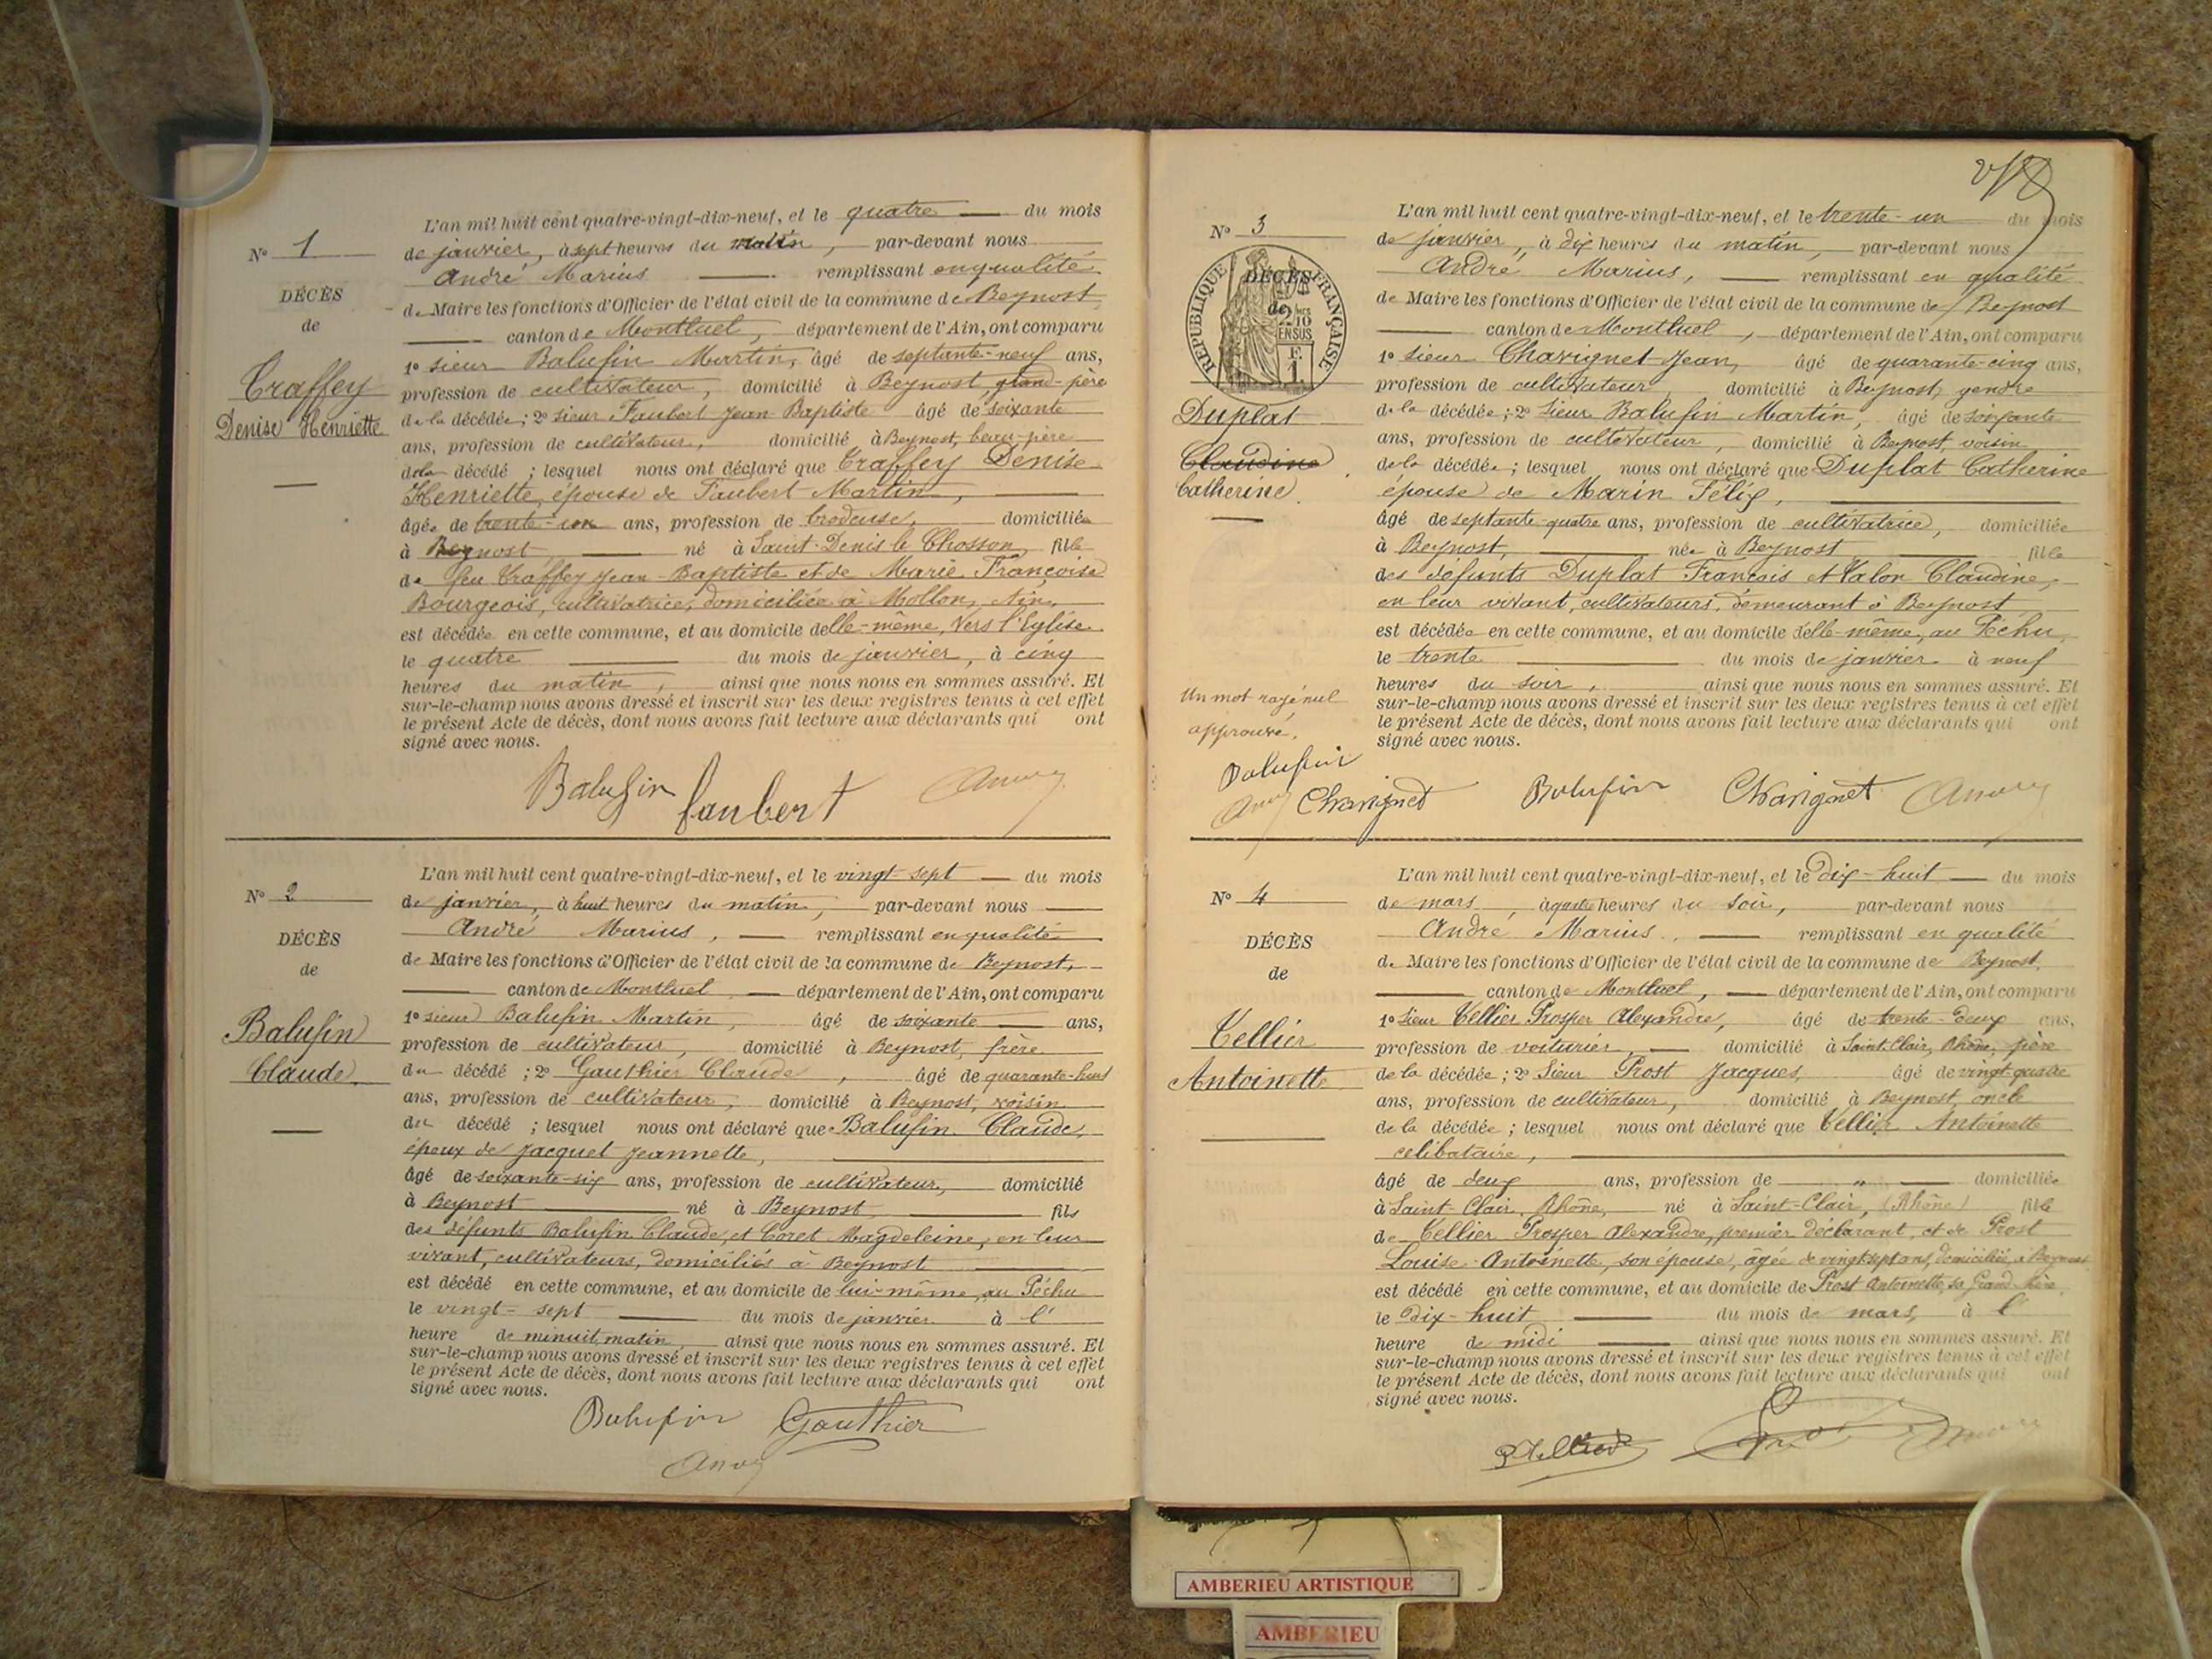 L'an mil huit cent quatre-vingt-dix-neuf, et le quatre — du mois
N° 1
de janvier, à sept heures du matin, par-devant nous
André Marius — remplissant en qualité
DÉCÈS
de Maire les fonctions d'Officier de l'état civil de la commune de Beynost
de
canton de Montluel, département de l'Ain, ont comparu
1° sieur Balufin Martin, âgé de septante-neuf ans,
Traffey
profession de cultivateur, domicilié à Beynost, grand-père
Denise Henriette
de la décédée; 2° sieur Faubert Jean Baptiste âgé de soixante
ans, profession de cultivateur, domicilié à Beynost, beau-père
de la décédé ; lesquel nous ont déclaré que Traffey Denise
Henriette, épouse de Faubert Martin,
âgée de trente-un ans, profession de brodeuse, domiciliée
à Beynost, né à Saint-Denis le Chosson, fille
de feu Traffey Jean-Baptiste et de Marie Françoise
Bourgeois, cultivatrice, domiciliée à Mollon, Ain,
est décédée en cette commune, et au domicile d'elle-même, vers l'Eglise
le quatre du mois de janvier, à cinq
heures du matin, ainsi que nous nous en sommes assuré. Et
sur-le-champ nous avons dressé et inscrit sur les deux registres tenus à cet effet
le présent Acte de décès, dont nous avons fait lecture aux déclarants qui ont
signé avec nous.
Balufin Faubert
L'an mil huit cent quatre-vingt-dix-neuf, et le vingt-sept — du mois
N° 2
de janvier, à huit heures du matin, par-devant nous
André Marius, — remplissant en qualité
DÉCÈS
de Maire les fonctions d'Officier de l'état civil de la commune de Beynost,
de
canton de Montluel, — département de l'Ain, ont comparu
Balufin
1° sieur Balufin Martin, âgé de soixante ans,
profession de cultivateur, domicilié à Beynost, frère
Claude.
du décédé ; 2° Gauthier Claude, âgé de quarante-huit
ans, profession de cultivateur, domicilié à Beynost, voisin
du décédé ; lesquel nous ont déclaré que Balufin Claude,
époux de Jacquet Jeannette,
âgé de soixante-six ans, profession de cultivateur, domicilié
à Beynost né à Beynost, fils
des défunts Balufin Claude, et Coret Magdeleine, en leur
vivant, cultivateurs, domiciliés à Beynost
est décédé en cette commune, et au domicile de lui-même, au Péchu
le vingt-sept du mois de janvier à l'
heure de minuit, matin, ainsi que nous nous en sommes assuré. Et
sur-le-champ nous avons dressé et inscrit sur les deux registres tenus à cet effet
le présent Acte de décès, dont nous avons fait lecture aux déclarants qui ont
signé avec nous.
Balufin Gauthier
L'an mil huit cent quatre-vingt-dix-neuf, et le trente-un du mois
N° 3
de janvier, à dix heures du matin, par-devant nous
RÉPUBLIQUE FRANÇAISE
André Marius, — remplissant en qualité
DÉCÈS
de Maire les fonctions d'Officier de l'état civil de la commune de Beynost
de
2/10 EN SUS
canton de Montluel, département de l'Ain, ont comparu
1° sieur Chavignet Jean, âgé de quarante-cinq ans,
profession de cultivateur domicilié à Beynost, gendre
Duplat
de la décédée ; 2° sieur Balufin Martin, âgé de soixante
ans, profession de cultivateur, domicilié à Beynost, voisin
Claudine
de la décédée ; lesquel nous ont déclaré que Duplat Catherine
Catherine
épouse de Marin Félix,
âgé de septante-quatre ans, profession de cultivatrice, domiciliée
à Beynost, née à Beynost fille
des défunts Duplat François et Valon Claudine,
en leur vivant, cultivateurs, demeurant à Beynost
est décédée en cette commune, et au domicile d'elle-même, au Péchu,
le trente du mois de janvier à neuf
heures du soir, ainsi que nous nous en sommes assuré. Et
Un mot rayé nul
sur-le-champ nous avons dressé et inscrit sur les deux registres tenus à cet effet
le présent Acte de décès, dont nous avons fait lecture aux déclarants qui ont
approuvé.
signé avec nous.
Balufin
Chavignet Balufin Chavignet
L'an mil huit cent quatre-vingt-dix-neuf, et le dix-huit — du mois
N° 4
de mars, à quatre heures du soir, par-devant nous
André Marius, — remplissant en qualité
DÉCÈS
de Maire les fonctions d'Officier de l'état civil de la commune de Beynost,
de
canton de Montluel, — département de l'Ain, ont comparu
Tellier
1° sieur Tellier Prosper Alexandre, âgé de trente-deux ans,
profession de voiturier, — domicilié à Saint-Clair, Rhône, père
Antoinette
de la décédée ; 2° sieur Prost Jacques, âgé de vingt-quatre
ans, profession de cultivateur, domicilié à Beynost, oncle
de la décédée ; lesquel nous ont déclaré que Tellier Antoinette
célibataire,
âgé de deux ans, profession de — " — domiciliée
à Saint-Clair, Rhône, né à Saint-Clair, (Rhône) fille
de Tellier Prosper Alexandre, premier déclarant, et de Prost
Louise-Antoinette, son épouse, âgée de vingt-sept ans, domiciliée à Beynost
est décédé en cette commune, et au domicile de Prost Antoinette, sa Grand-Mère,
le dix-huit du mois de mars, à l'
heure de midi ainsi que nous nous en sommes assuré. Et
sur-le-champ nous avons dressé et inscrit sur les deux registres tenus à cet effet
le présent Acte de décès, dont nous avons fait lecture aux déclarants qui ont
signé avec nous.
AMBERIEU ARTISTIQUE
AMBERIEU